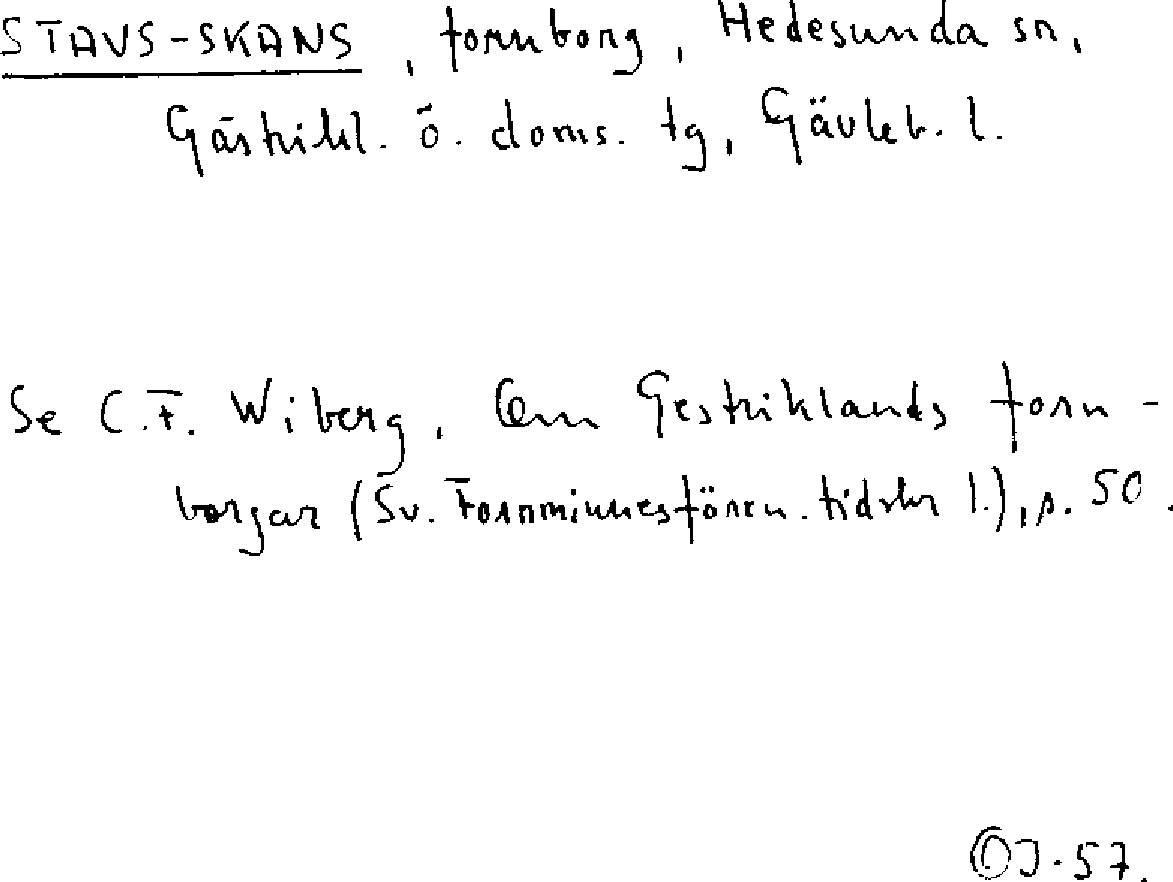 STAVS-SKANS, fornborg, Hedesunda sn,
Gästrikl. ö. doms. tg, Gävleb. l.
Se C.F. Wiberg, Om Gestriklands forn-
borgar (Sv. Fornminnesfören. tidskr 1.), s. 50.
ÖJ-57.